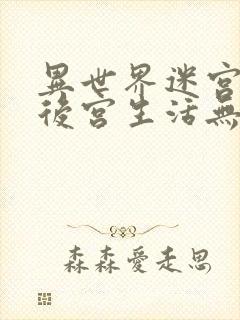 異世界迷宮
後宮生活無
森森愛走思